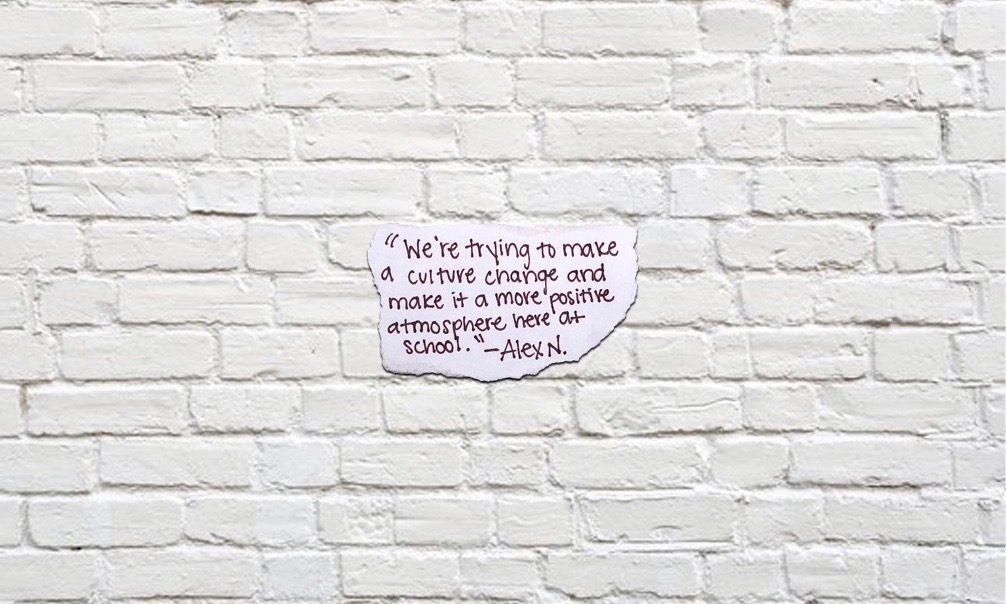 "We're trying to make
a culture change and
make it a more positive
atmosphere here at
school."-Alex N.